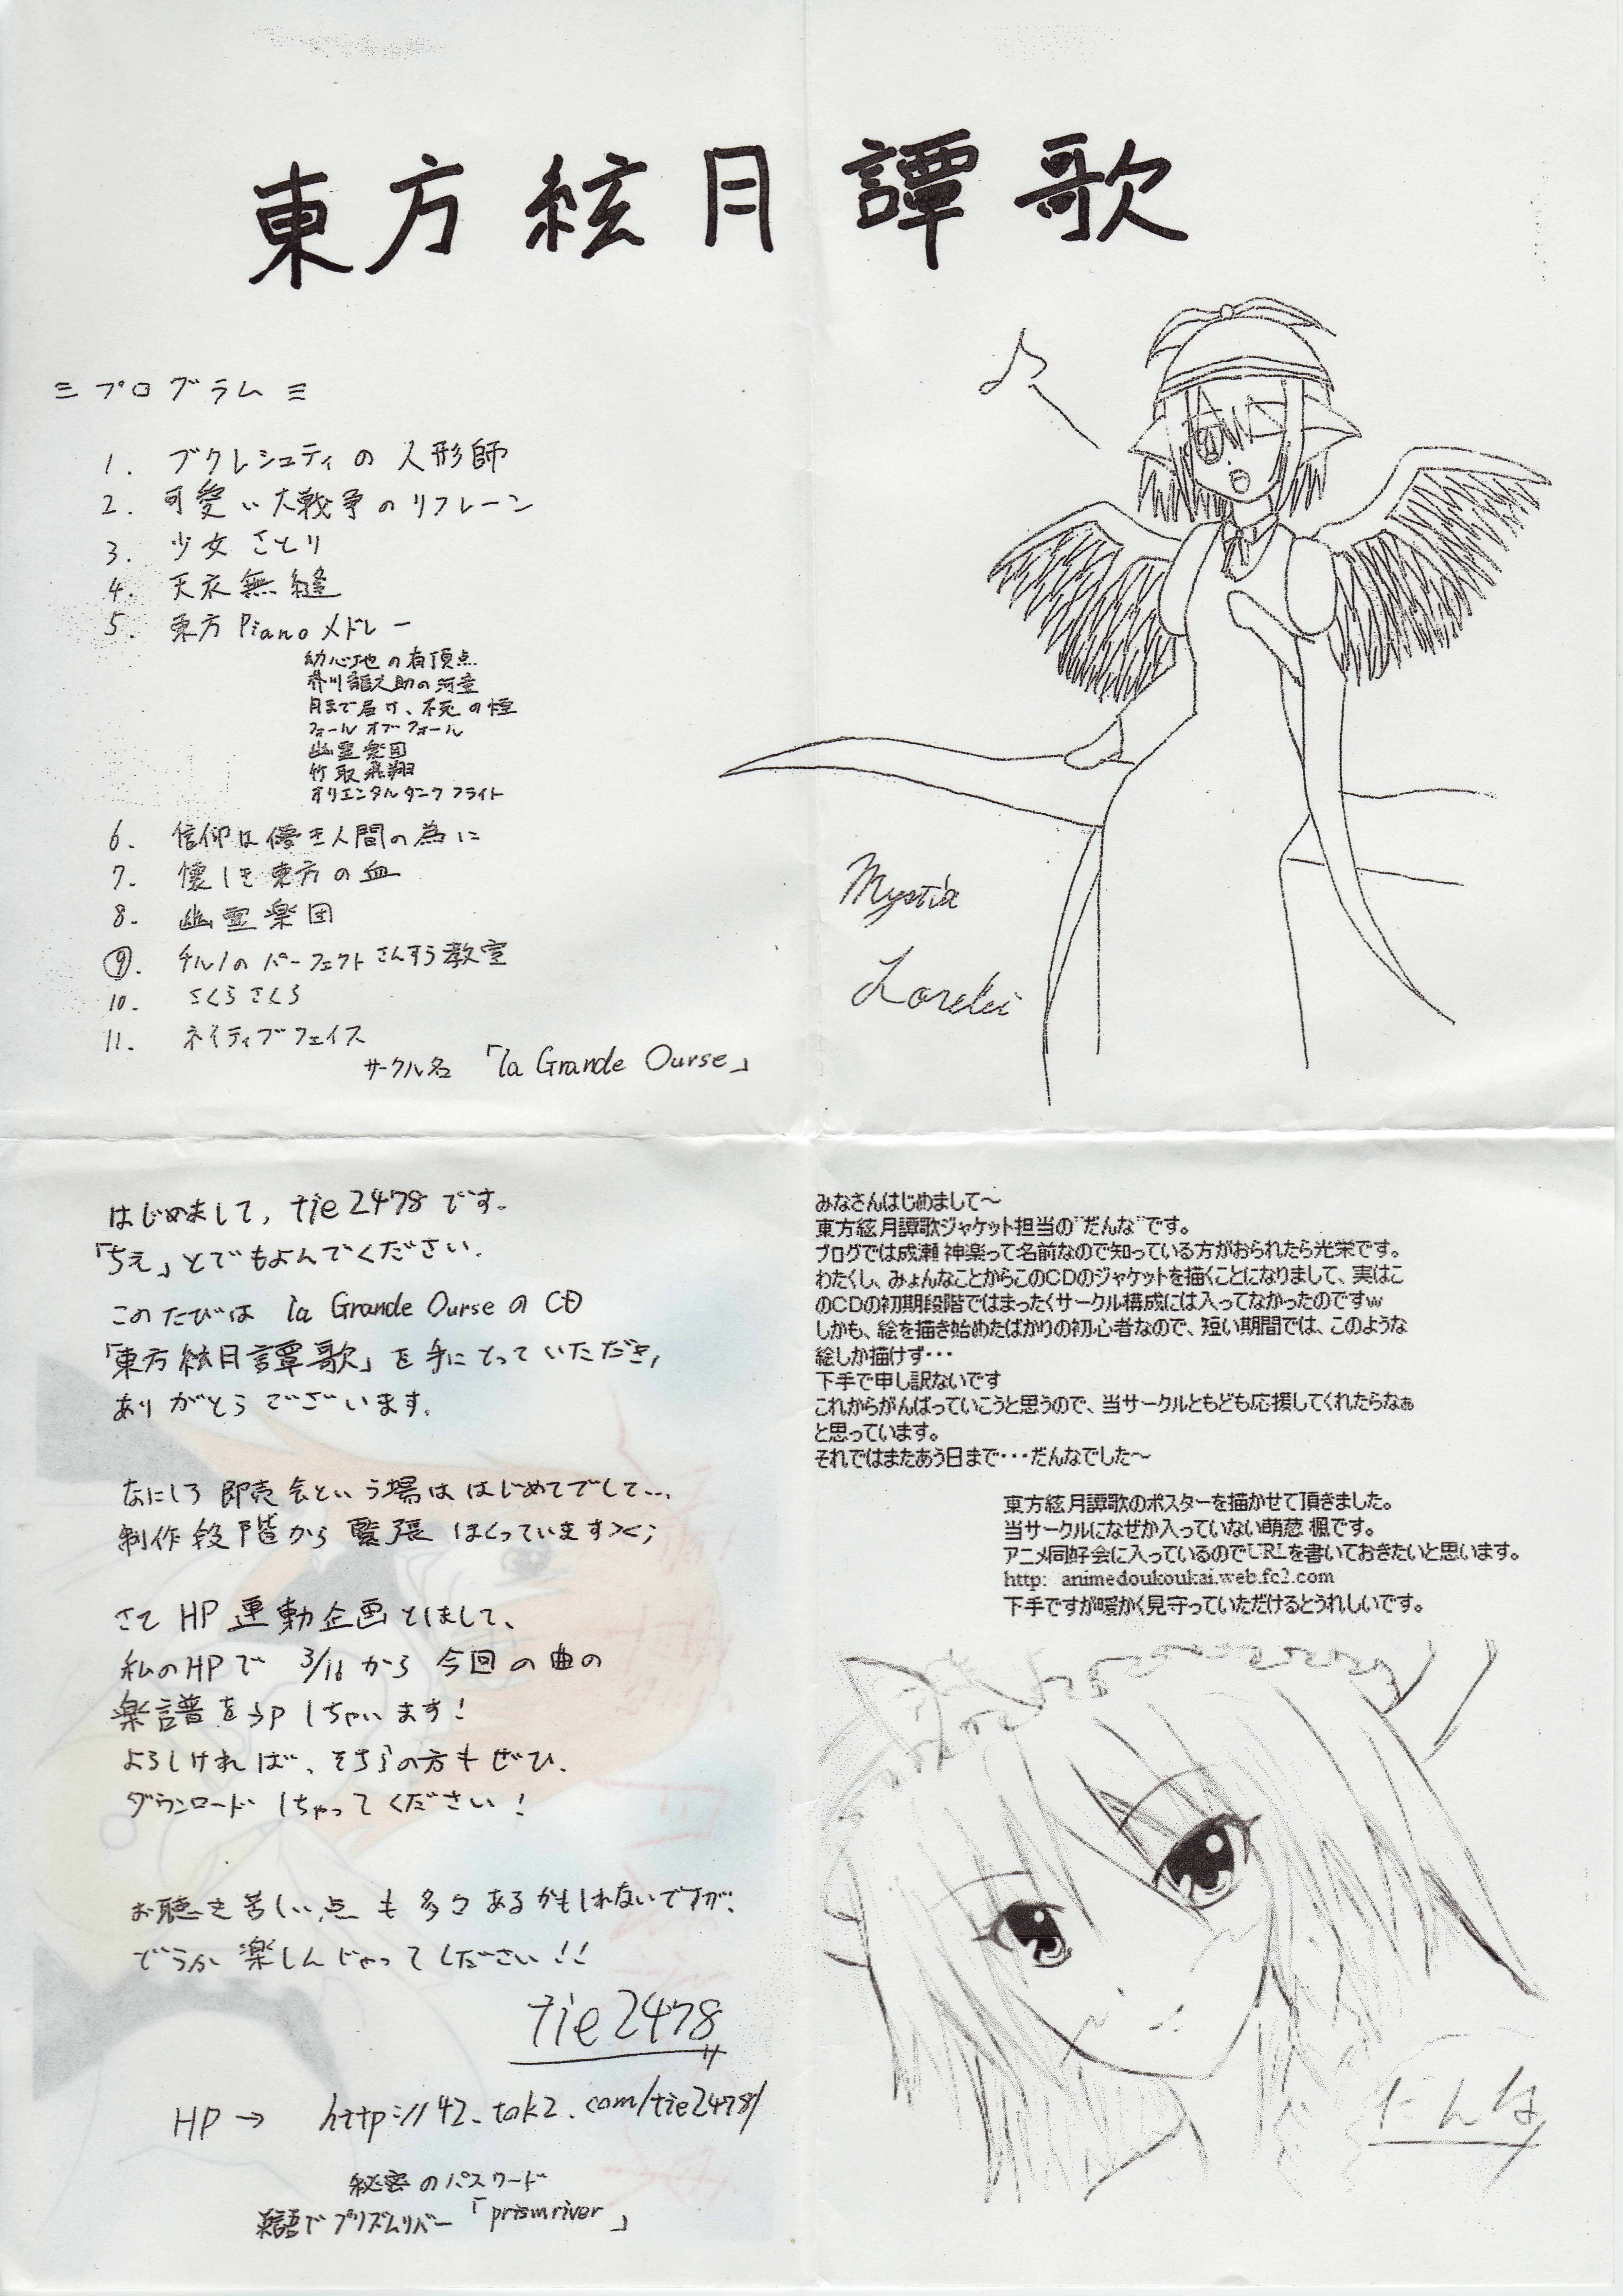 東方絃月譚歌
≡プログラム≡
1. ブクレシュティの人形師
2. 可愛い大戦争のリフレーン
3. 少女さとり
4. 天衣無縫
5. 東方Pianoメドレー
幼心地の有頂点
芥川龍之助の河童
月まで届け、不死の煙
フォールオブフォール
幽霊楽団
竹取飛翔
オリエンタルダークフライト
6. 信仰は儚き人間の為に
7. 懐しき東方の血
8. 幽霊楽団
⑨. チルノのパーフェクトさんすう教室
10. さくらさくら
11. ネイティブフェイス
サークル名 「la Grande Ourse」
Mystia
Lorelei
はじめまして, tie2478です.
「ちえ」とでもよんでください.
このたびは la Grande OurseのCD
「東方絃月譚歌」を手にとっていただき,
ありがとうございます.
なにしろ即売会という場ははじめてでして...
制作段階から緊張しまくっています><;
さて HP運動企画としまして、
私のHPで 3/16から今回の曲の
楽譜をupしちゃいます!
よろしければ、そちらの方もぜひ.
ダウンロードしちゃってください!
お聴き苦しい点も多々あるかもしれないですが.
どうか楽しんじゃってください!!
tie2478
HP→ http://42.tok2.com/tie2478/
秘密のパスワード
英語でプリズムリバー「prismriver」
みなさんはじめまして～
東方絃月譚歌ジャケット担当の¨だんな¨です。
ブログでは成瀬 神楽って名前なので知っている方がおられたら光栄です。
わたくし、みょんなことからこのCDのジャケットを描くことになりまして、実はこ
のCDの初期段階ではまったくサークル構成には入ってなかったのですｗ
しかも、絵を描き始めたばかりの初心者なので、短い期間では、このような
絵しか描けず・・・
下手で申し訳ないです
これからがんばっていこうと思うので、当サークルともども応援してくれたらなぁ
と思っています。
それではまたあう日まで・・・だんなでした～
東方絃月譚歌のポスターを描かせて頂きました。
当サークルになぜか入っていない萌葱 楓です。
アニメ同好会に入っているのでURLを書いておきたいと思います。
http: animedoukoukai.web.fc2.com
下手ですが暖かく見守っていただけるとうれしいです。
だんな